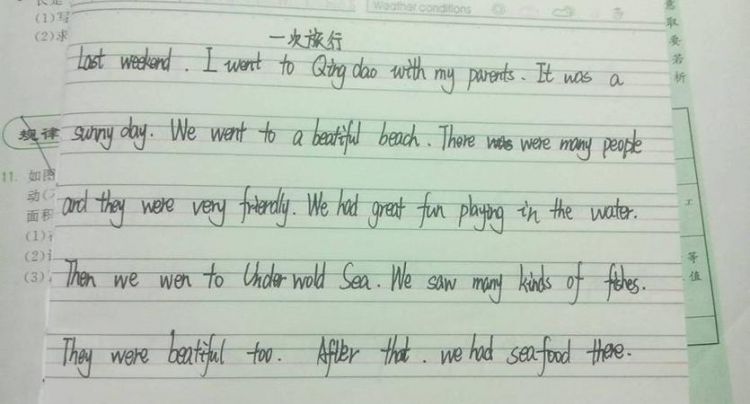 Weather conditions
(1)写
(2)求
一次旅行
Last weekend. I went to Qing dao with my parents. It was a
规律 sunny day. We went to a beatiful beach. There was were many people
11. 如图
动
面积
and they were very friendly. We had great fun playing in the water.
(1)
(2)
(3)
Then we wen to Under wold Sea. We saw many kinds of fishes.
They were beatiful too. After that. we had seafood there.
意
取
要
若
析
x
等
值